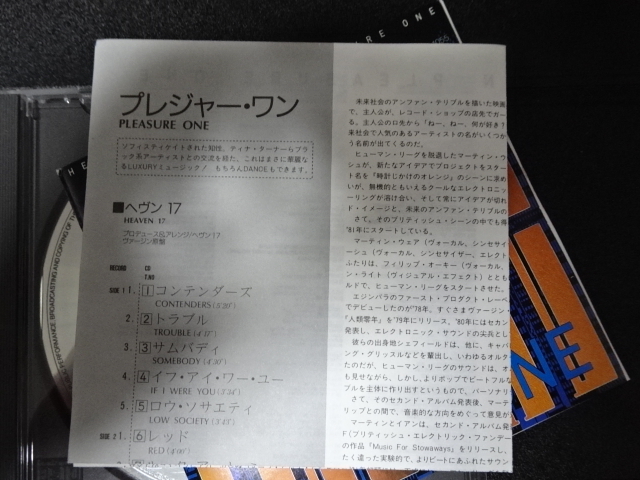 プレジャー・ワン
PLEASURE ONE
ソフィスティケイトされた知性、ティナ・ターナーらブラ
ック系アーティストとの交流を経た、これはまさに華麗な
るLUXURYミュージック! もちろんDANCEもできます。
■ヘヴン 17
HEAVEN 17
プロデュース&アレンジ/ヘヴン17
ヴァージン原盤
RECORD CD
T.NO
SIDE 1 1. 1 コンテンダーズ
CONTENDERS
2. 2 トラブル
TROUBLE (4'17")
3. 3 サムバディ
SOMEBODY
4. 4 イフ・アイ・ワー・ユー
IF I WERE YOU
5. 5 ロウ・ソサエティ
LOW SOCIETY
SIDE 2 1. 6 レッド
RED
未来社会のアンファン・テリブルを描いた映画
で、主人公が、レコード・ショップの店先でガー
る。主人公の口先から「ねー、ねー、何が好き?
来社会で人気のあるアーティストの名がいくつか
う名前が出てくるのだ。
ヒューマン・リーグを脱退したマーティン・ウ
シュが、新たなアイデアでプロジェクトをスター
ト名を『時計じかけのオレンジ』のシーンに求め
いが、無機的ともいえるクールなエレクトロニッ
ーリングが溶け合い、そして常にアイデアが切れ
ド・イメージと、未来のアンファン・テリブルの
さて、そのブリティッシュ・シーンの中でも得
'81年にスタートしている。
マーティン・ウェア(ヴォーカル、シンセサイ
ーシュ(ヴォーカル、シンセサイザー、エレクト
ふたりは、フィリップ・オーキー(ヴォーカル、
ン・ライト(ヴィジュアル・エフェクト)ととも
ルドで、ヒューマン・リーグをスタートさせた。
エジンバラのファースト・プロダクト・レーベ
でデビューしたのが'78年。すぐさまヴァージン・
『人類零年』を'79年にリリース。'80年にはセカン
発表し、エレクトロニック・サウンドの尖兵とし
彼らの出身地シェフィールドは、他に、キャバ
ング・グリッスルなどを輩出し、いわゆるオルタ
たのだが、ヒューマン・リーグのサウンドは、オ
も見せながら、しかし、よりポップでビートフルな
ブルを主体に作り出すというもので、パーソナリ
さて、そのセカンド・アルバム発表後、マーテ
リップとの間で、音楽的な方向をめぐって意見が
マーティンとイアンは、セカンド・アルバム発
F(ブリティッシュ・エレクトリック・ファンデー
の作品『Music For Stowaways』をリリースし、
たく違った実験的で、よりビートにあふれたサウン
URE ONE
NE